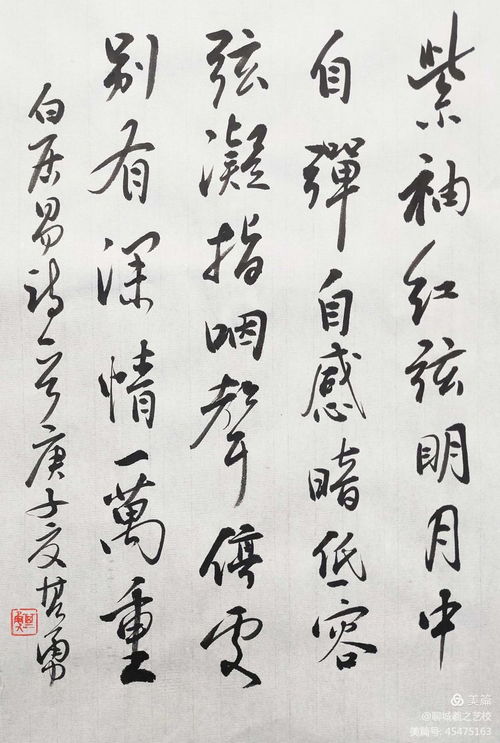 紫袖红弦明月中
自彈自感暗低容
弦凝指咽聲停处
别有深情一萬重
白居易诗一首庚子夏其勇
美篇
@聊城羲之艺校
美篇号: 45475163